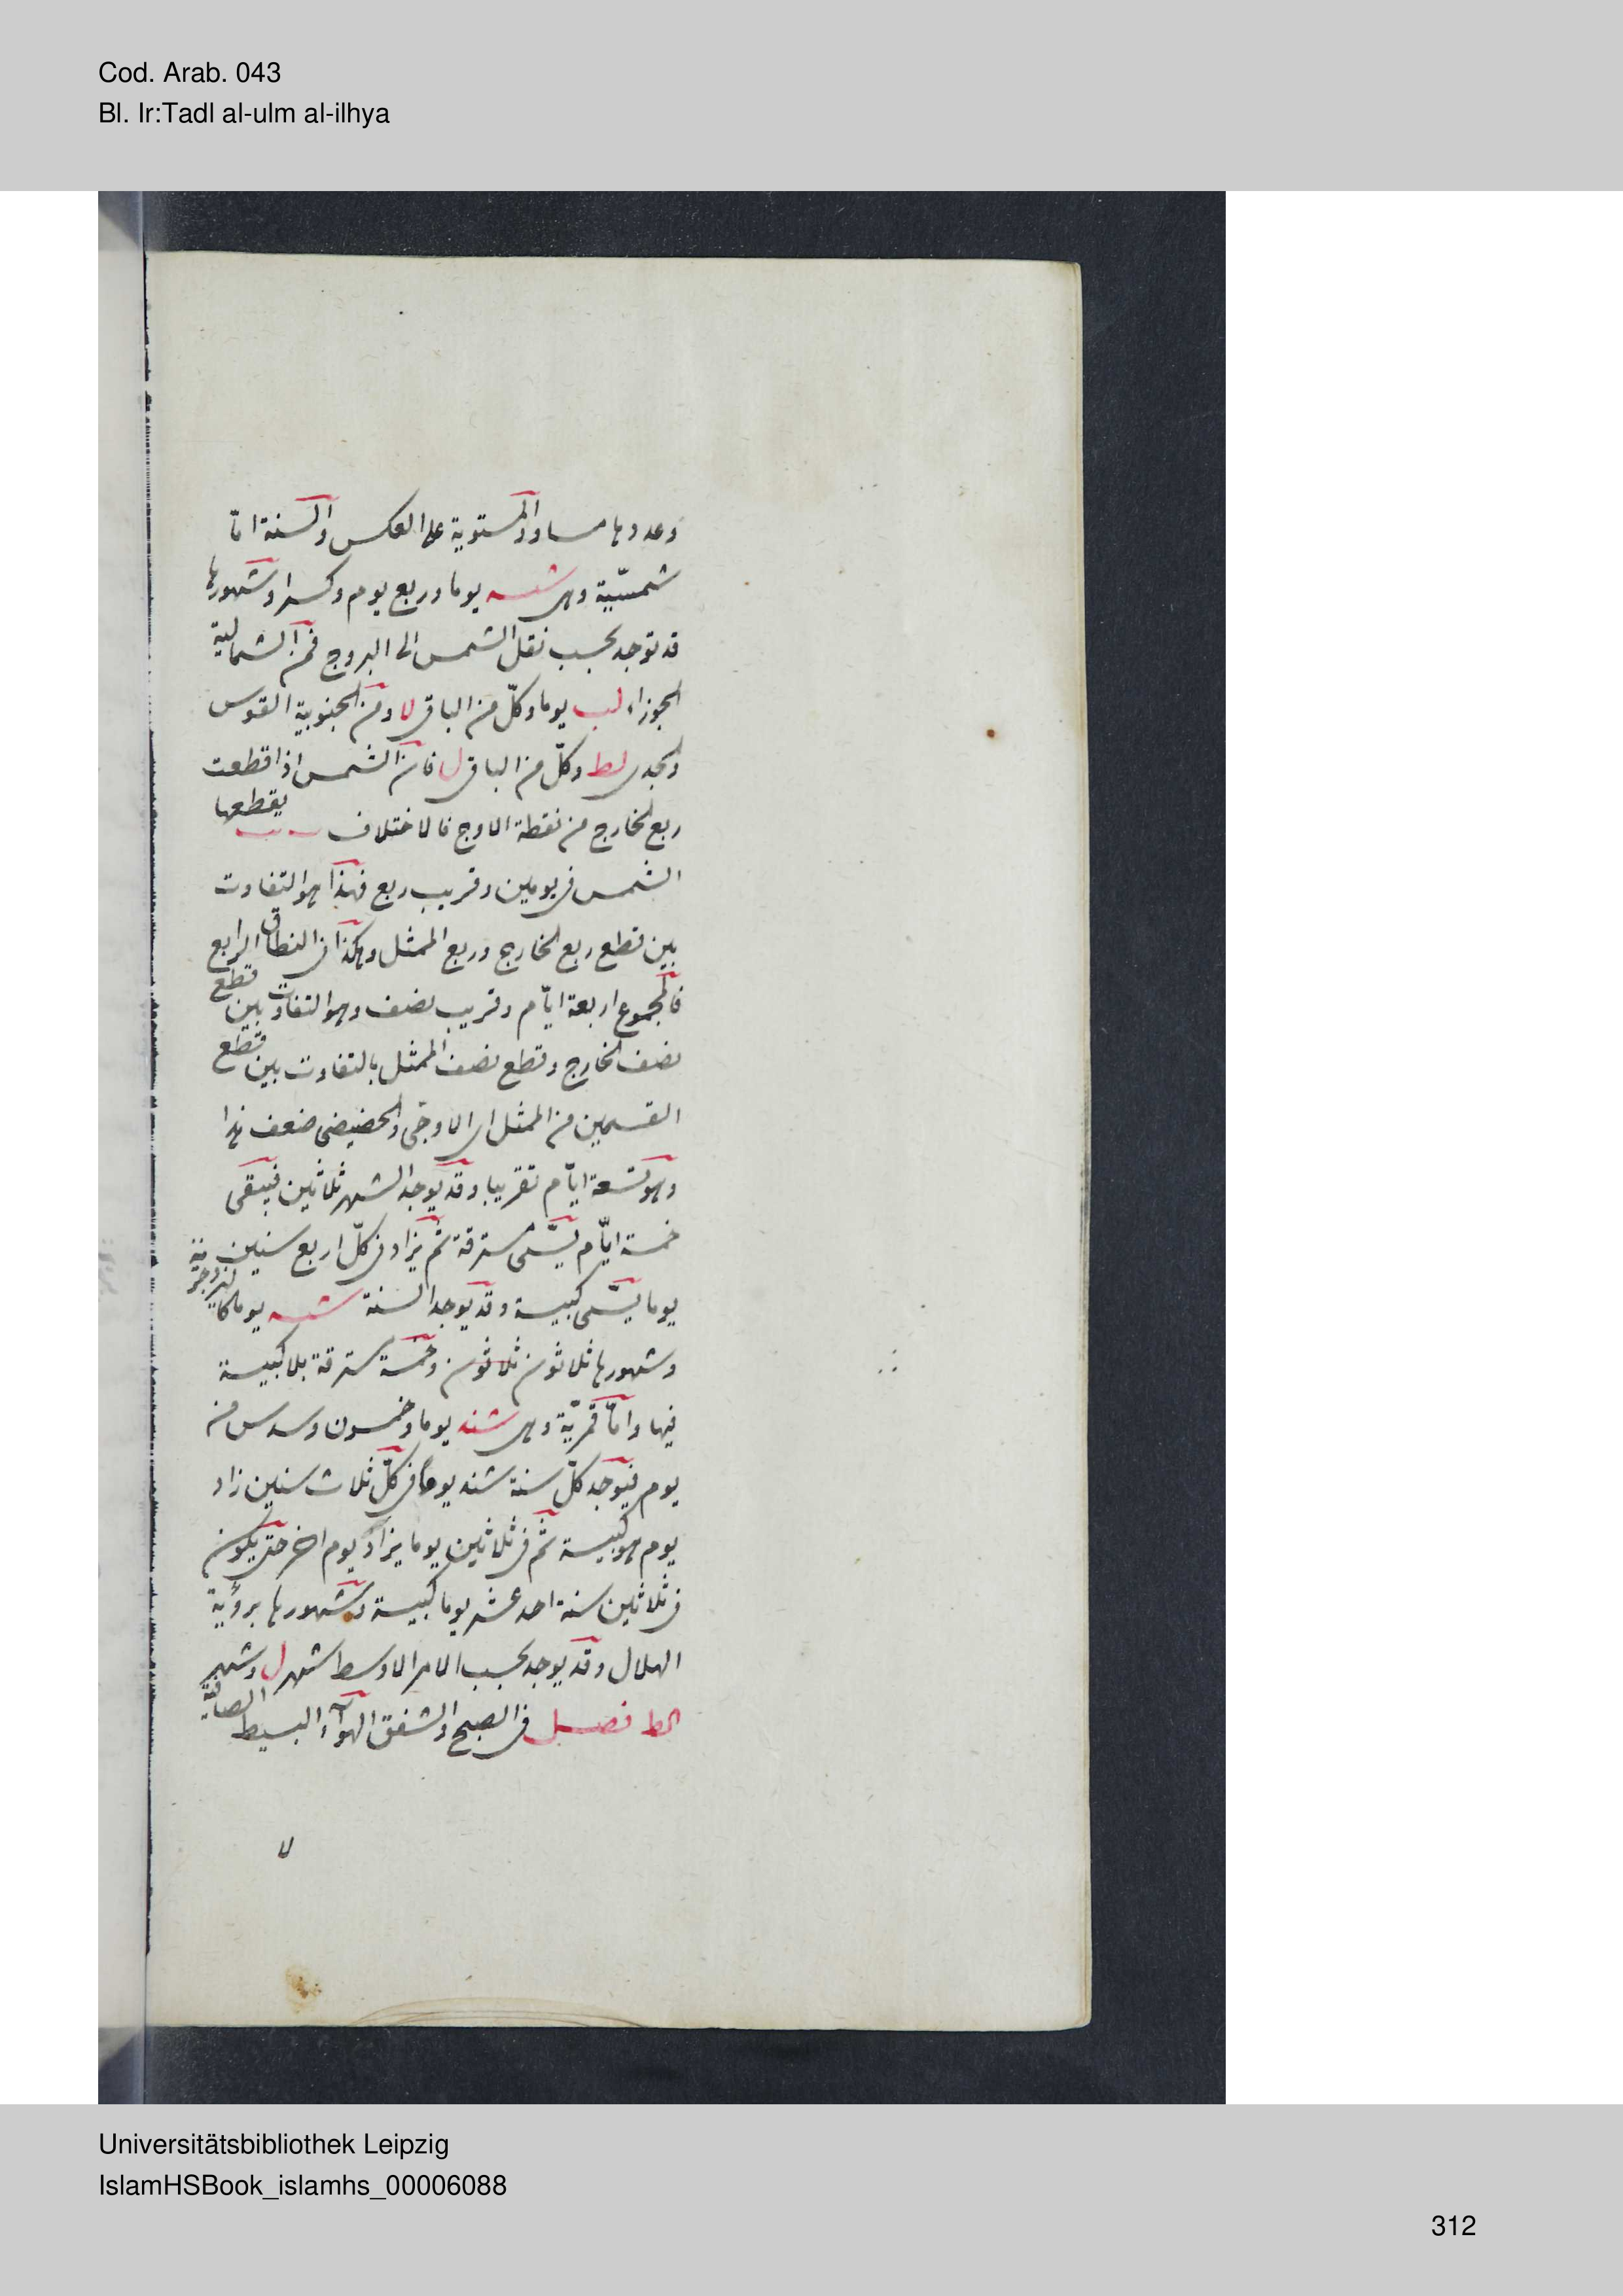 Cod. Arab. 043
Bl. Ir:Tadl al-ulm al-ilhya
وعددها مساو والمستوية على العكس والسنة امّا
شمسيّة وهى شسه يوما وربع يوم وكسرا وشهورها
قد توجد بحسب نقل الشمس الى البروج فمن الشمالية
الجوزاء لب يوما وكلّ من الباقى لا ومن الجنوبية القوس
والجدى لط وكلّ من الباقى ل فانّ الشمس اذا قطعت
ربع الخارج من نقطة الاوج فالاختلاف يقطعها
الشمس فى يومين وقريب ربع فهذا هو التفاوت
بين قطع ربع الخارج وربع الممثل وهكذا فى النطاق الرابع
فالمجموع اربعة ايّام وقريب نصف وهو التفاوت بين قطع
نصف الخارج وقطع نصف الممثل بالتفاوت بين قطع
القسمين من الممثل اى الاوجى والحضيضى ضعف هذا
وهو تسعة ايّام تقريبا وقد يوجد الشهر ثلاثين فيبقى
خمسة ايّام يسمّى مسترقة ثم يزاد فى كلّ اربع سنين
يوما يسمّى كبيسة وقد يوجد السنة شسه يوما كاليزدجردية
وشهورها ثلاثون ثلاثون وخمسة مسترقة بلا كبيسة
فيها وامّا قمريّة وهى شند يوما وخمس وسدس من
يوم فيوجد كلّ سنة شند يوما فى كلّ ثلاث سنين زاد
يوم هو كبيسة ثم فى ثلاثين يوما يزاد يوم اخر حتى يكون
فى ثلاثين سنة احد عشر يوما كبيسة وشهورها برؤية
الهلال وقد يوجد بحسب الامر الاوسط شهر ل وشهر
الط فصل فى الصبح والشفق الهواء البسيط الصافية
Universitätsbibliothek Leipzig
IslamHSBook_islamhs_00006088
312